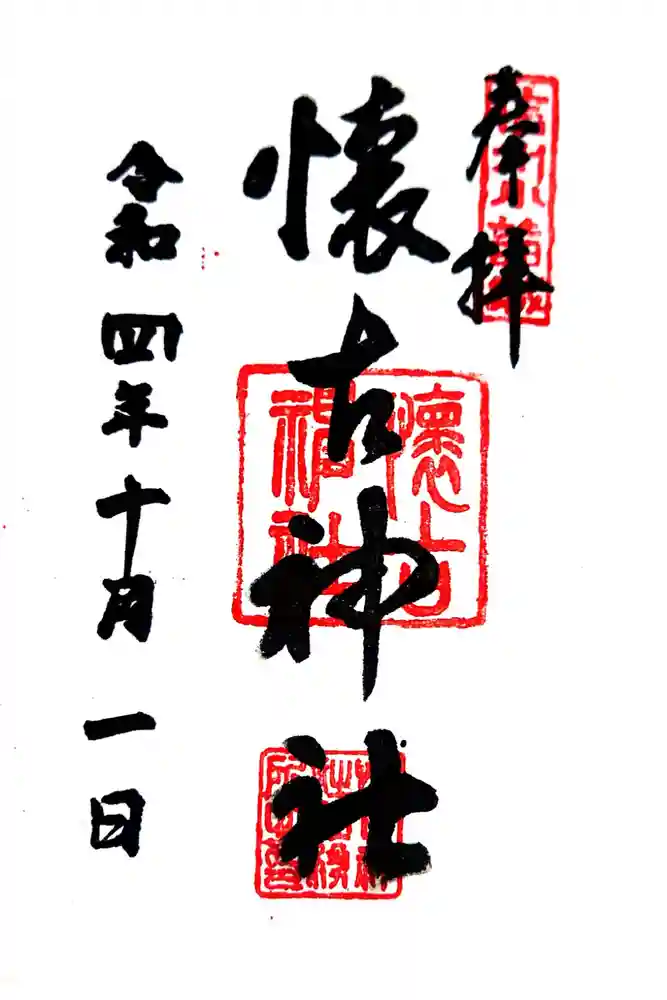 奉拝
懐古神社
懐古神社
令和四年十月一日